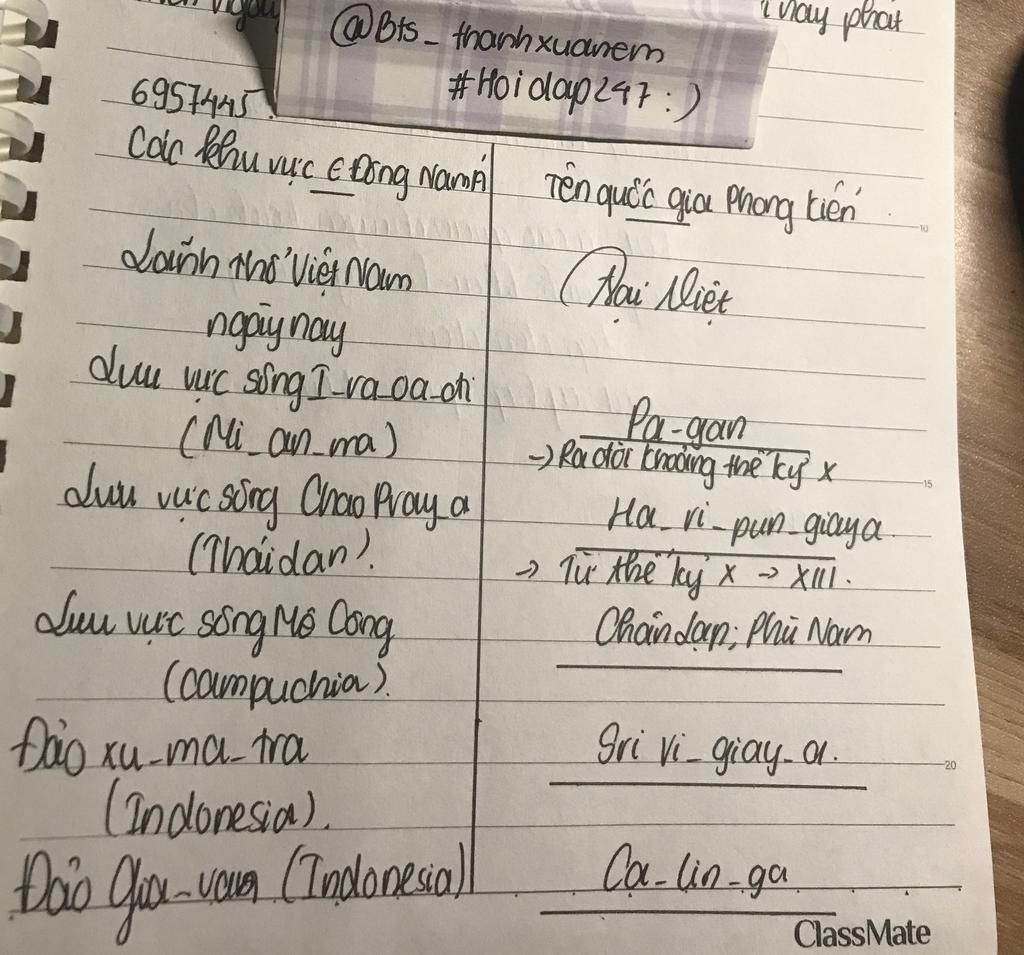 ngay
i nay phát
@Bts_thanhxuanem
#Hoidap247:)
6957445.
Các khu vực ở Đông Nam Á
Tên quốc gia Phong kiến
Lãnh thổ Việt Nam
ngày nay
Đại Việt
Lưu vực sông I_ra_oa_đi
(Mi_an_ma)
Pa-gan
-> Ra đời khoảng thế kỷ X
Lưu vực sông Chao Pray_a
(Thái Lan).
Ha_ri_pun_giaya
-> Từ thế kỷ X -> XIII.
Lưu vực sông Mê Công
(Campuchia).
Chân Lạp; Phù Nam
Đảo xu_ma_tra
(Indonesia).
Sri vi_giay_a.
Đảo Gia_va (Indonesia)
Ca_lin_ga
ClassMate
10
15
20